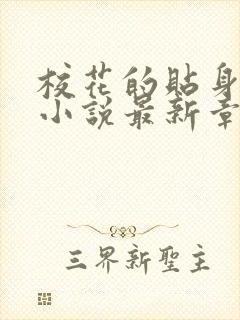 校花的貼身
小說最新章
三界新聖主